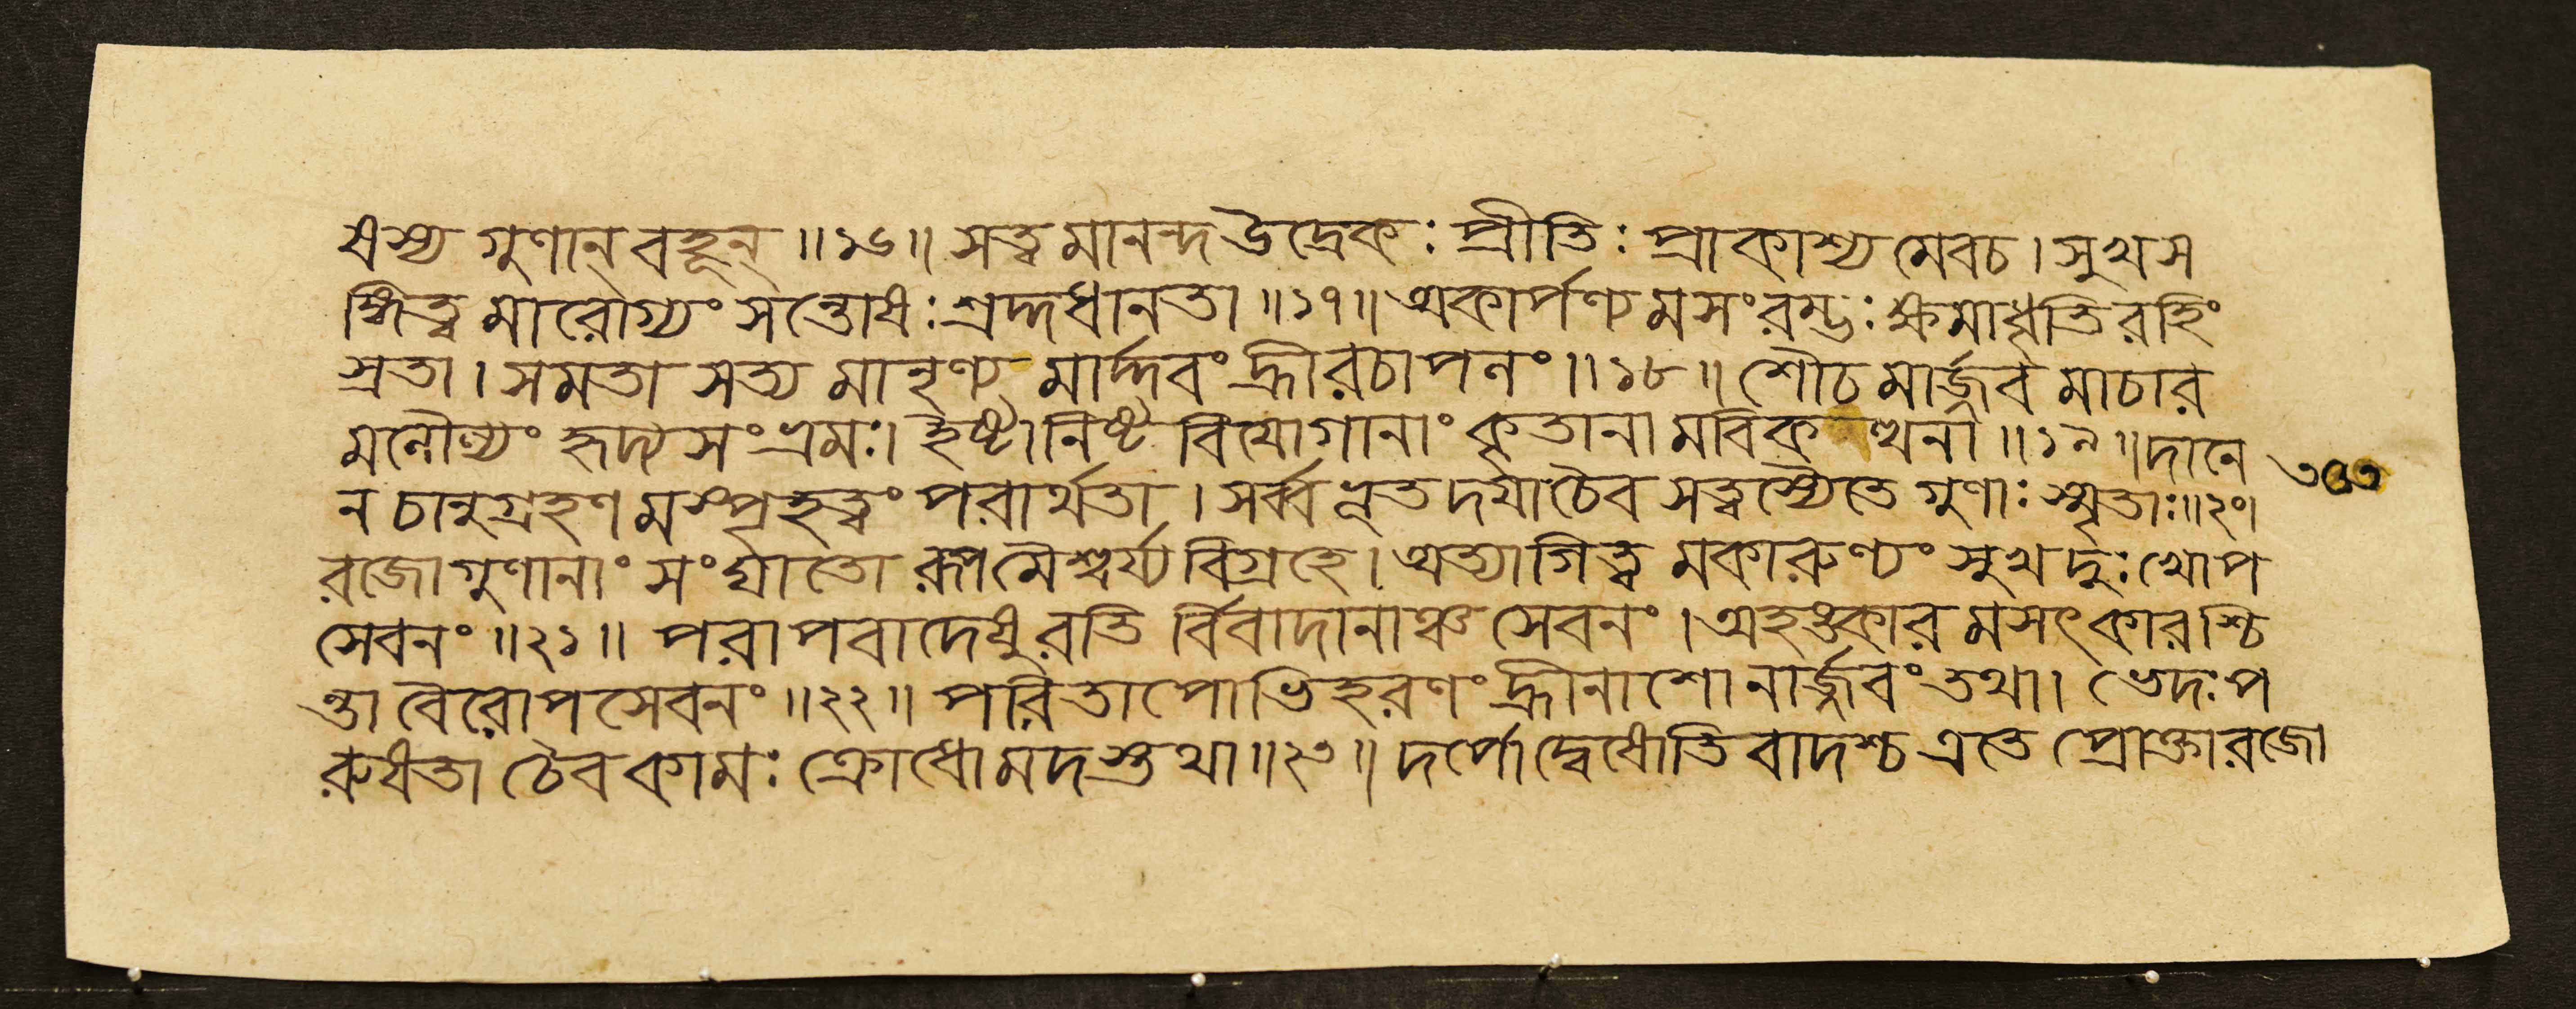 ষস্য গুণান্ বহূন্ ॥১৬॥ সত্ত্ব মানন্দ উদ্রেকঃ প্রীতিঃ প্রাকাশ্য মেবচ। সুখ স
ঙ্গিত্ব মারোগ্যং সন্তোষঃ শ্রদ্দধানতা ॥১৭॥ অকার্পণ্য মসংরম্ভঃ ক্ষমাধৃতিরহিং
স্রতা। সমতা সত্য মানৃণ্য মার্দ্দবং হ্রীরচাপলং ॥১৮॥ শৌচ মার্জ্জব মাচার
মলৌল্যং হৃদ্য সংভ্রমঃ। ইষ্টানিষ্ট বিয়োগানাং কৃতানা মবিকত্থনা ॥১৯॥ দানে
ন চানুগ্রহণ মস্পৃহত্বং পরার্থতা। সর্ব্বভূত দয়া চৈব সত্ত্বস্যৈতে গুণাঃ স্মৃতাঃ ॥২০।
রজোগুণানাং সংঘাতো রূপমৈশ্বর্য্য বিগ্রহে। অত্যাগিত্ব মকারুণ্যং সুখ দুঃখোপ
সেবনং ॥২১॥ পরাপবাদেষু রতি র্বিবাদানাঞ্চ সেবনং। অহঙ্কার মসৎকারশ্চি
ন্তা বৈরোপসেবনং ॥২২॥ পরিতাপোভিহরণং হ্রীনাশোনার্জ্জবং তথা। ভেদঃ প
রুষতা চৈব কামঃ ক্রোধো মদস্তথা ॥২৩॥ দর্পো দ্বেষোতিবাদশ্চ এতে প্রোক্তা রজো
৩৫৩